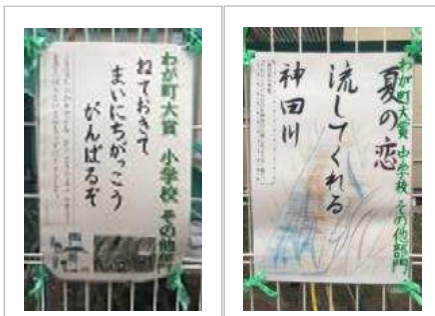 わが町大賞 小学校 その他部門
ねておきて
まいにちがっこう
がんばるぞ
わが町大賞 中学校 その他部門
夏の恋
流してくれる
神田川